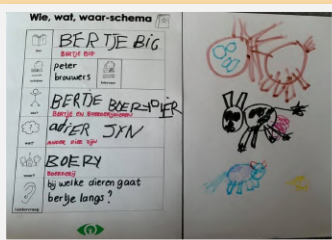 Wie, wat, waar-schema
BERTJE BIG
BERTJE BIG
peter
brouwers
BERTJE BOERYDIER
BERTJE EN BOERDERIJDIEREN
adIER JYN
ANDER DIER ZIJN
BOERY
BOERDERIJ
bij welke dieren gaat
bertje langs?